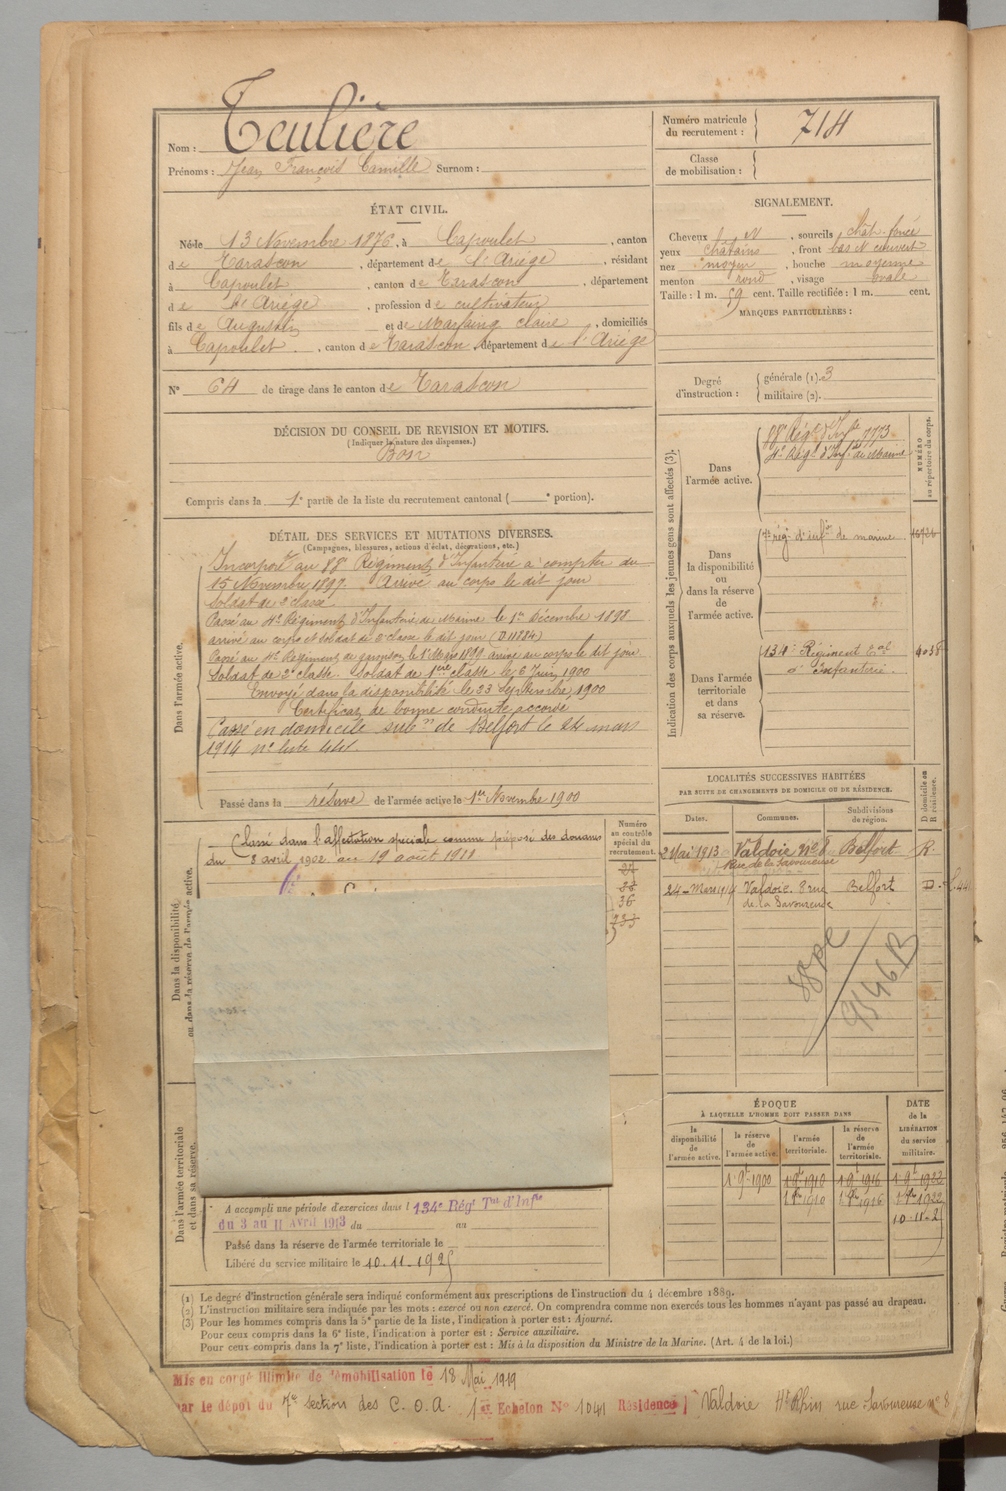 Nom : Teulière
Prénoms : Jean François Camille Surnom :
Numéro matricule du recrutement : 714
Classe de mobilisation :
ÉTAT CIVIL.
Né le 13 Novembre 1876, à Capoulet, canton
de Tarascon, département de l'Ariège, résidant
à Capoulet, canton de Tarascon, département
de l'Ariège, profession de cultivateur
fils de Augustin et de Marfaing Claire, domiciliés
à Capoulet, canton de Tarascon, département de l'Ariège
N° 64 de tirage dans le canton de Tarascon
SIGNALEMENT.
Cheveux et N, sourcils chât. foncé
yeux châtains, front bas N couvert
nez moyen, bouche moyenne
menton rond, visage ovale
Taille : 1 m. 59 cent. Taille rectifiée : 1 m. cent.
MARQUES PARTICULIÈRES :
Degré d'instruction : générale (1). 3
militaire (2).
DÉCISION DU CONSEIL DE REVISION ET MOTIFS.
(Indiquer la nature des dispenses.)
Bon
Compris dans la 1e partie de la liste du recrutement cantonal ( e portion).
DÉTAIL DES SERVICES ET MUTATIONS DIVERSES.
(Campagnes, blessures, actions d'éclat, décorations, etc.)
Dans l'armée active.
Incorporé au 88e Régiment d'Infanterie à compter du
15 Novembre 1897. Arrivé au corps le dit jour
Soldat de 2e classe.
Passé au 4e Régiment d'Infanterie de Marine le 1er Décembre 1898
arrivé au corps et soldat de 2e classe le dit jour (D 11884)
Passé au 4e Régiment de garnison le 1er Mars 1899 arrivé au corps le dit jour
Soldat de 2e classe. Soldat de 1ère classe le 6 Juin 1900
Envoyé dans la disponibilité le 23 Septembre 1900
Certificat de bonne conduite accordé
Passé en domicile subon de Belfort le 24 mars
1914 n° liste 441
Passé dans la réserve de l'armée active le 1er Novembre 1900
Indication des corps auxquels les jeunes gens sont affectés (3).
NUMÉRO au répertoire du corps.
Dans l'armée active.
88e Régt d'Infie 7773
4e Régt d'Infie de Marine
Dans la disponibilité ou dans la réserve de l'armée active.
4e rég. d'infie de marine.
Dans l'armée territoriale et dans sa réserve.
134e Régiment Tal
d'Infanterie.
LOCALITÉS SUCCESSIVES HABITÉES
PAR SUITE DE CHANGEMENTS DE DOMICILE OU DE RÉSIDENCE.
Dates.
Communes.
Subdivisions de région.
D domicile ou R résidence.
2 Mai 1913 Valdoie N° 8 Belfort R.
Rue de la Savoureuse
24 Mars 1914 Valdoie. 8 rue Belfort D.
de la Savoureuse
Dans la disponibilité ou dans la réserve de l'armée active.
Numéro au contrôle spécial du recrutement.
Classé dans l'affectation spéciale comme préposé des douanes
du 8 avril 1902 au 19 août 1911
36
Dans l'armée territoriale et dans sa réserve.
A accompli une période d'exercices dans l 134e Régt Tal d'Infie
du 3 au 11 Avril 1913 du au
Passé dans la réserve de l'armée territoriale le
Libéré du service militaire le 10.11.1925
ÉPOQUE
À LAQUELLE L'HOMME DOIT PASSER DANS
la disponibilité de l'armée active.
la réserve de l'armée active.
l'armée territoriale.
la réserve de l'armée territoriale.
DATE de la LIBÉRATION du service militaire.
1 9e 1900 1 9e 1910 1 9e 1916 1 9e 1922
10-11-25
(1) Le degré d'instruction générale sera indiqué conformément aux prescriptions de l'instruction du 4 décembre 1889.
(2) L'instruction militaire sera indiquée par les mots : exercé ou non exercé. On comprendra comme non exercés tous les hommes n'ayant pas passé au drapeau.
(3) Pour les hommes compris dans la 5e partie de la liste, l'indication à porter est : Ajourné.
Pour ceux compris dans la 6e liste, l'indication à porter est : Service auxiliaire.
Pour ceux compris dans la 7e liste, l'indication à porter est : Mis à la disposition du Ministre de la Marine. (Art. 4 de la loi.)
Mis en congé illimité de démobilisation le 18 Mai 1919
par le dépôt du 7e section des C. O. A. 1er Echelon N° 1041 Résidence Valdoie Ht Rhin rue Savoureuse n° 8